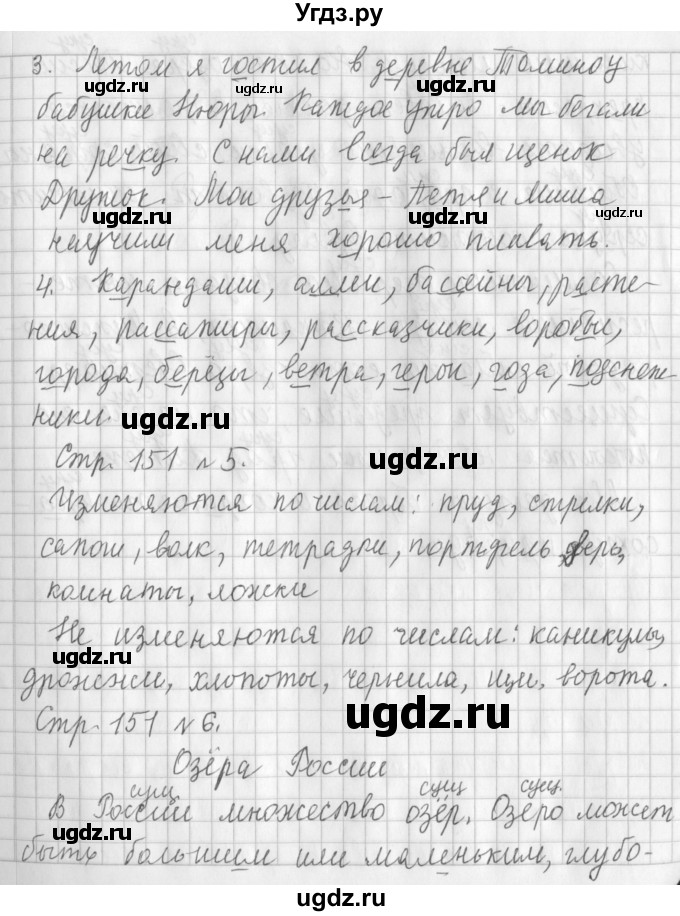 Угдз.ру
3. Летом я гостил в деревне Томино у
бабушки Нюры. Каждое утро мы бегали
на речку. С нами всегда был щенок
Дружок. Мои друзья – Петя и Миша
научили меня хорошо плавать.
4. Карандаши, аллеи, бассейны, расте-
ния, пассажиры, рассказчики, воробьи,
города, берёзы, ветра, герои, года, подснеж-
ники.
Стр. 151 №5.
Изменяются по числам: пруд, стрелки,
сапоги, волк, тетрадки, портфель, дверь,
комнаты, ложки
Не изменяются по числам: каникулы,
дрожжи, хлопоты, чернила, щи, ворота.
Стр. 151 №6.
Озёра России
сущ. сущ. сущ.
В России множество озёр. Озеро может
быть большим или маленьким, глубо-
ugdz.ru
ugdz.ru
ugdz.ru
ugdz.ru
ugdz.ru
ugdz.ru
ugdz.ru
ugdz.ru
ugdz.ru
ugdz.ru
ugdz.ru
ugdz.ru
ugdz.ru
ugdz.ru